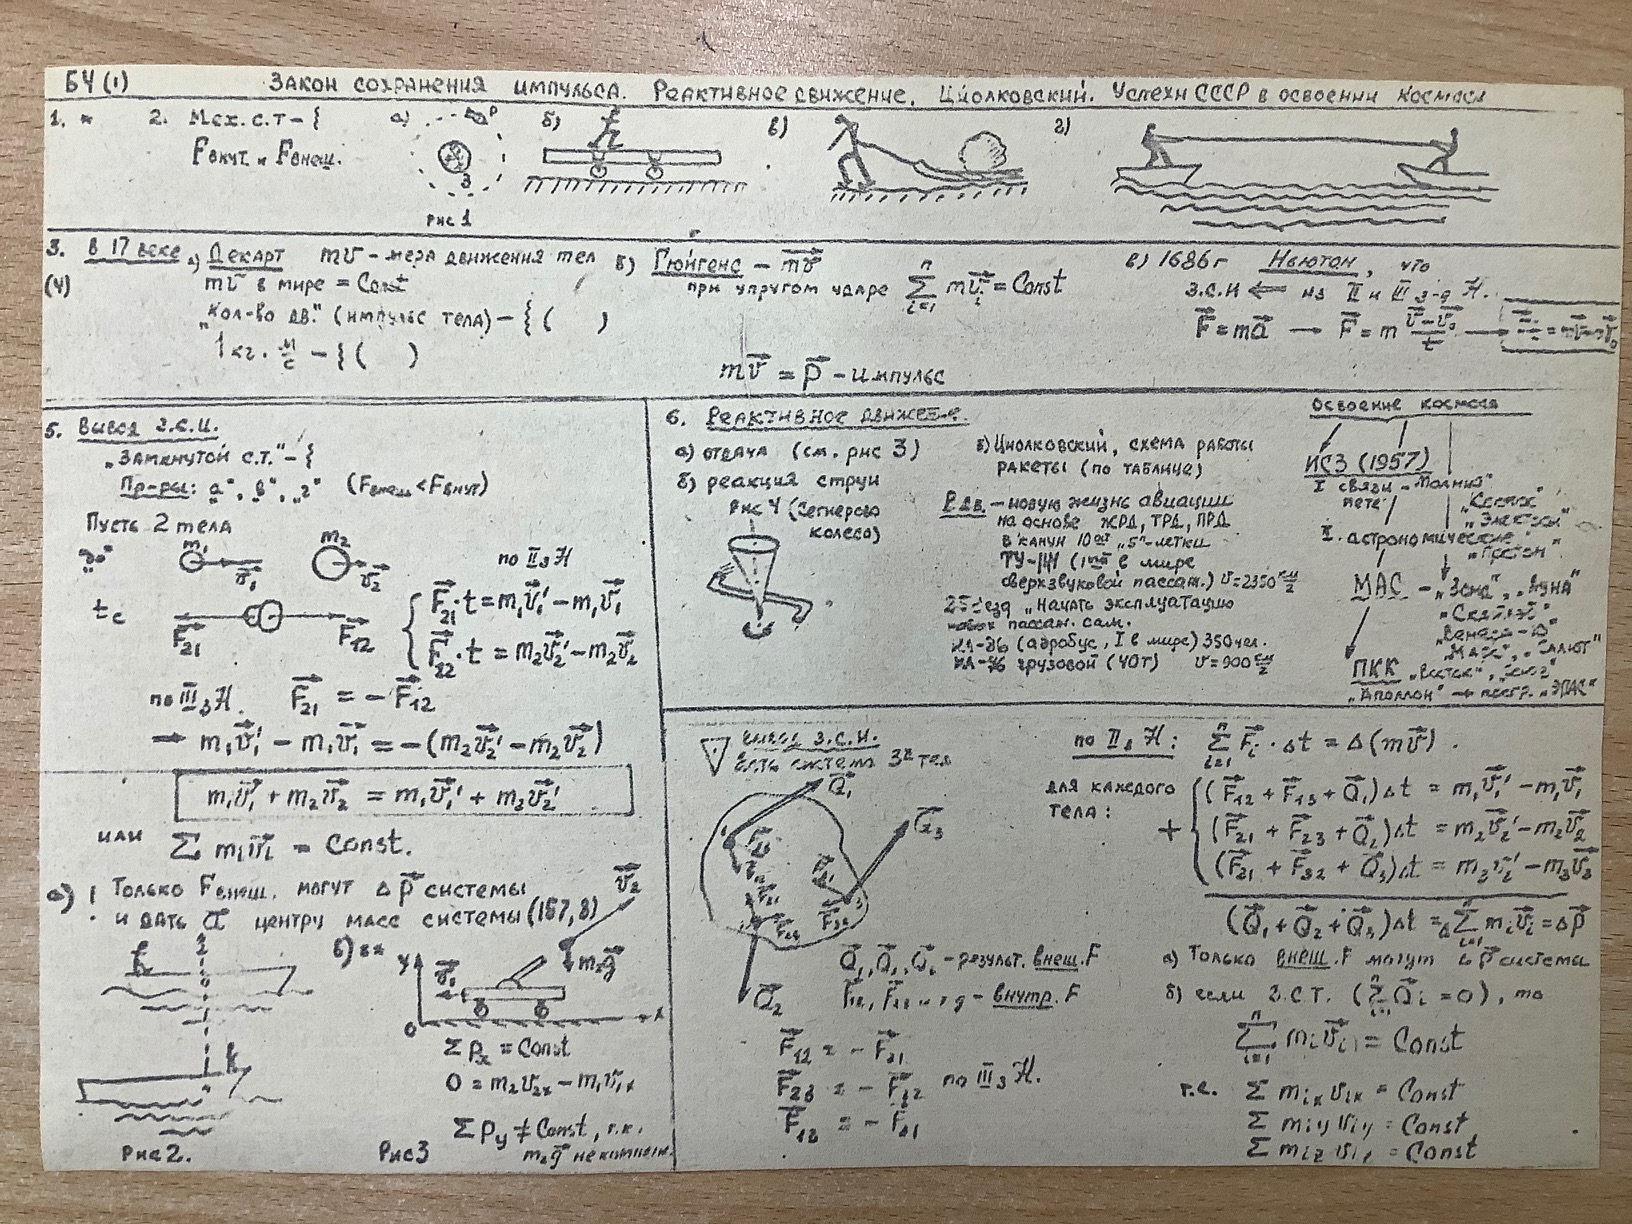 БЧ (1) Закон сохранения импульса. Реактивное движение. Циолковский. Успехи СССР в освоении космоса
1. * 2. Мех. с.т – {
Fвнут. и Fвнеш.
а) б) в) г)
Рис 1
3. в 17 веке а) Декарт mv – мера движения тел
(4) mv в мире = Const
„Кол-во дв." (импульс тела) – { ( )
1 кг · м/с – { ( )
б) Гюйгенс – mv⃗
при упругом ударе ∑ mv⃗i = Const
mv⃗ = p⃗ – импульс
в) 1686г Ньютон, что
З.С.И ⇐ из II и III з-д Н.
F⃗ = ma⃗ → F⃗ = m (v⃗ – v⃗0)/t →
5. Вывод З.С.И.
„Замкнутой с.т." – {
Пр-ры: „а", „в", „г" (Fвнеш < Fвнут)
Пусть 2 тела
„до" m1 v⃗1 m2 v⃗2
по II з Н
tс F⃗21 F⃗12
F⃗21 · t = m1v⃗1' – m1v⃗1
F⃗12 · t = m2v⃗2' – m2v⃗2
по III з Н. F⃗21 = – F⃗12
→ m1v⃗1' – m1v⃗1 = –(m2v⃗2' – m2v⃗2)
m1v⃗1 + m2v⃗2 = m1v⃗1' + m2v⃗2'
или ∑ miv⃗i = Const.
а) Только Fвнеш. могут Δp⃗ системы
и дать a⃗ центру масс системы (157,8)
Рис 2.
б)
y v⃗1 v⃗2 m2g⃗
0 x
∑ px = Const
0 = m2v2x – m1v1x
∑ py ≠ Const, т.к.
m2g⃗ не компенс.
Рис 3
6. Реактивное движение.
а) отдача (см. рис 3)
б) реакция струи
Рис 4 (Сегнерово
колесо)
в) Циолковский, схема работы
ракеты (по таблице)
Р.дв. – новую жизнь авиации
на основе ЖРД, ТРД, ПРД
в канун 10ой „5"-летки
ТУ-144 (1ый в мире
сверхзвуковой пассаж.) v=2350 км/ч
25 съезд „Начать эксплуатацию
новых пассаж. сам.
ИЛ-86 (аэробус, I в мире) 350 чел.
ИЛ-76 грузовой (40т) v=900 км/ч
Освоение космоса
ИСЗ (1957)
I связи – „Молния"
„Космос"
„Электрон"
астрономические „Протон"
МАС – „Зонд", „Луна"
„Венера-10"
„Марс", „Салют"
ПКК „Восток", „Союз"
„Аполлон" → „ЭПАС"
▽ Вывод З.С.И.
Есть система 3х тел
Q⃗1 Q⃗3 Q⃗2
Q⃗1, Q⃗2, Q⃗i – результ. внеш. F
F12, F21 и т д – внутр. F
F⃗12 = – F⃗21
F⃗23 = – F⃗32 по III з Н.
F⃗13 = – F⃗31
по II з Н: ∑ F⃗i · Δt = Δ(mv⃗).
для каждого
тела:
(F⃗12 + F⃗13 + Q⃗1)Δt = m1v⃗1' – m1v⃗1
+ (F⃗21 + F⃗23 + Q⃗2)Δt = m2v⃗2' – m2v⃗2
(F⃗31 + F⃗32 + Q⃗3)Δt = m3v⃗3' – m3v⃗3
(Q⃗1 + Q⃗2 + Q⃗3)Δt = Δ∑ miv⃗i = Δp⃗
а) Только внеш. F могут Δp⃗ системы
б) если З.С.Т. (∑ Q⃗i = 0), то
∑ miv⃗i = Const
т.е. ∑ mix vix = Const
∑ miy viy = Const
∑ miz viz = Const